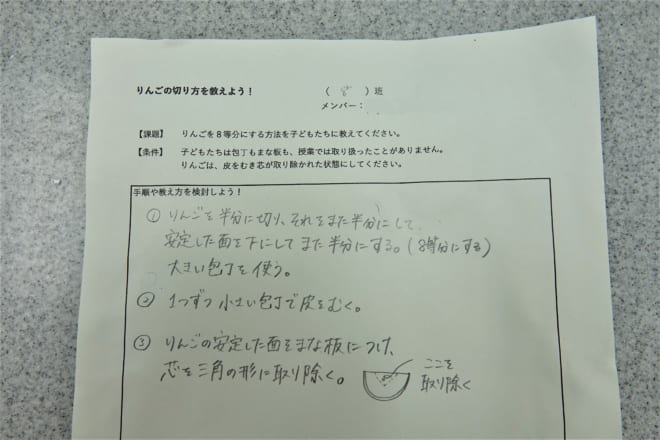 りんごの切り方を教えよう！
（ 8 ）班
メンバー：
【課題】 りんごを8等分にする方法を子どもたちに教えてください。
【条件】 子どもたちは包丁もまな板も、授業では取り扱ったことがありません。
りんごは、皮をむき芯が取り除かれた状態にしてください。
手順や教え方を検討しよう！
① りんごを半分に切り、それをまた半分にして、
安定した面を下にしてまた半分にする。(8等分にする)
大きい包丁を使う。
② 1つずつ小さい包丁で皮をむく。
③ りんごの安定した面をまな板につけ、
芯を三角の形に取り除く。
ここを
取り除く